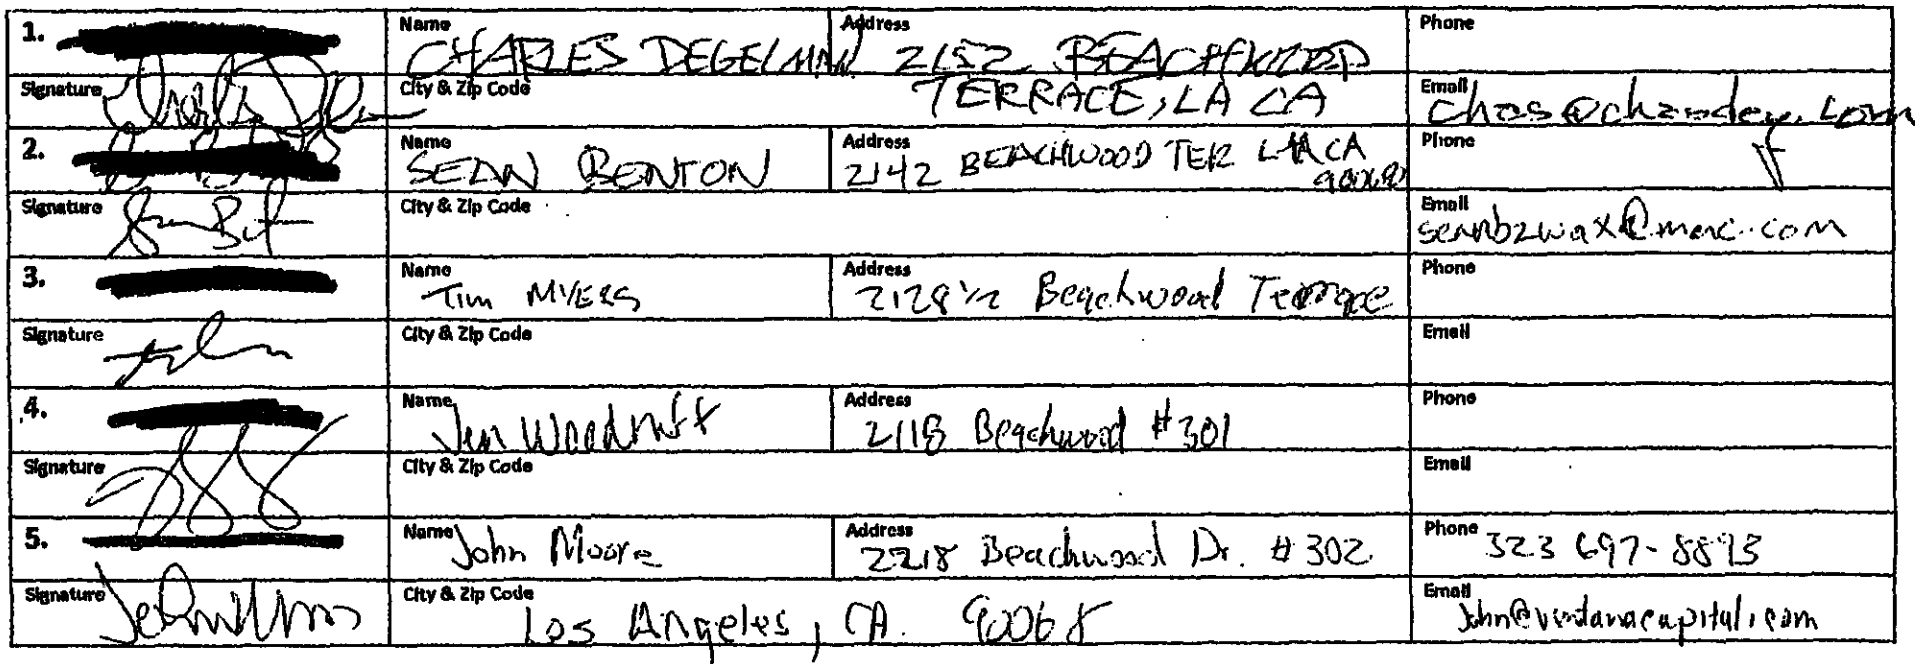 1. Name Address Phone
CHARLES DEGELMAN 2152 BEACHWOOD
Signature City & Zip Code TERRACE, LA CA Email chas@chasdey.com
2. Name SEAN BENTON Address 2142 BEACHWOOD TER LA CA 90068 Phone
Signature City & Zip Code Email seanbzwax@mac.com
3. Name Tim MYERS Address 2128 1/2 Beachwood Terrace Phone
Signature City & Zip Code Email
4. Name Jen Woodruff Address 2118 Beachwood #301 Phone
Signature City & Zip Code Email
5. Name John Moore Address 2218 Beachwood Dr. #302 Phone 323 697-8893
Signature City & Zip Code Los Angeles, CA. 90068 Email John@ventanacapital.com